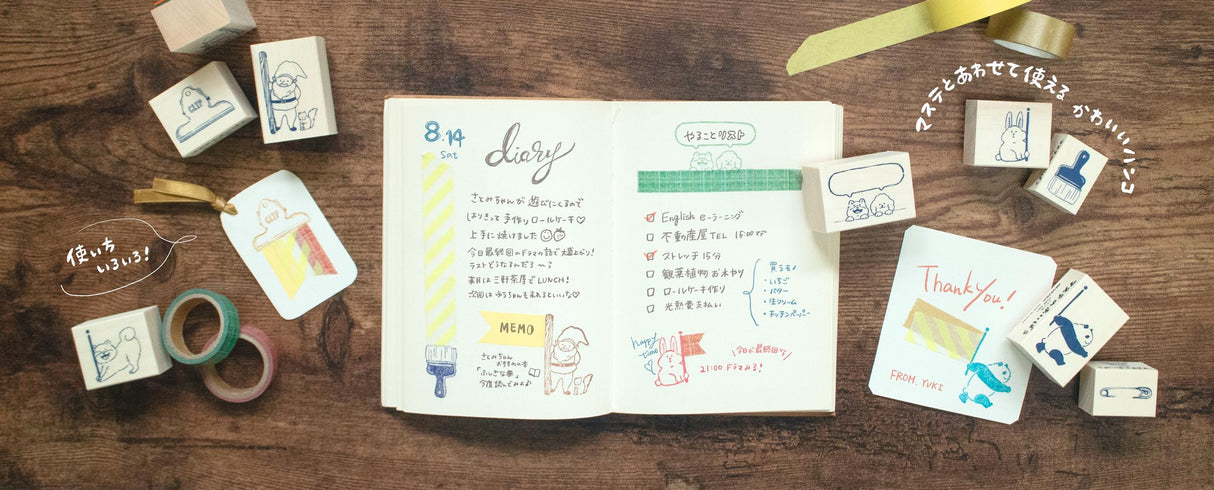 マステとあわせて使える かわいいハンコ
使い方
いろいろ!
CLIP
CLIP
8.14
Sat
diary
さとみちゃんが 遊びにくるので
はりきって 手作り ロールケーキ♡
上手に焼けました
今日最終回のドラマの話で大盛上がり!
ラストどうなるんだろ〜〜?
来月は三軒茶屋でLUNCH!
次回は ゆうちゃんも来れるといいな♡
MEMO
さとみちゃん
おすすめの本
「ふしぎな夢」
今度読んでみよ♪
やることリスト
English e-ラーニング
不動産屋 TEL 15:00まで
ストレッチ 15分
観葉植物 お水やり
ロールケーキ作り
光熱費支払い
買うモノ
・いちご
・バター
・生クリーム
・キッチンペーパー
happy
time
今日が最終回!
21:00 ドラマみる!
Thank You!
FROM. YUKI